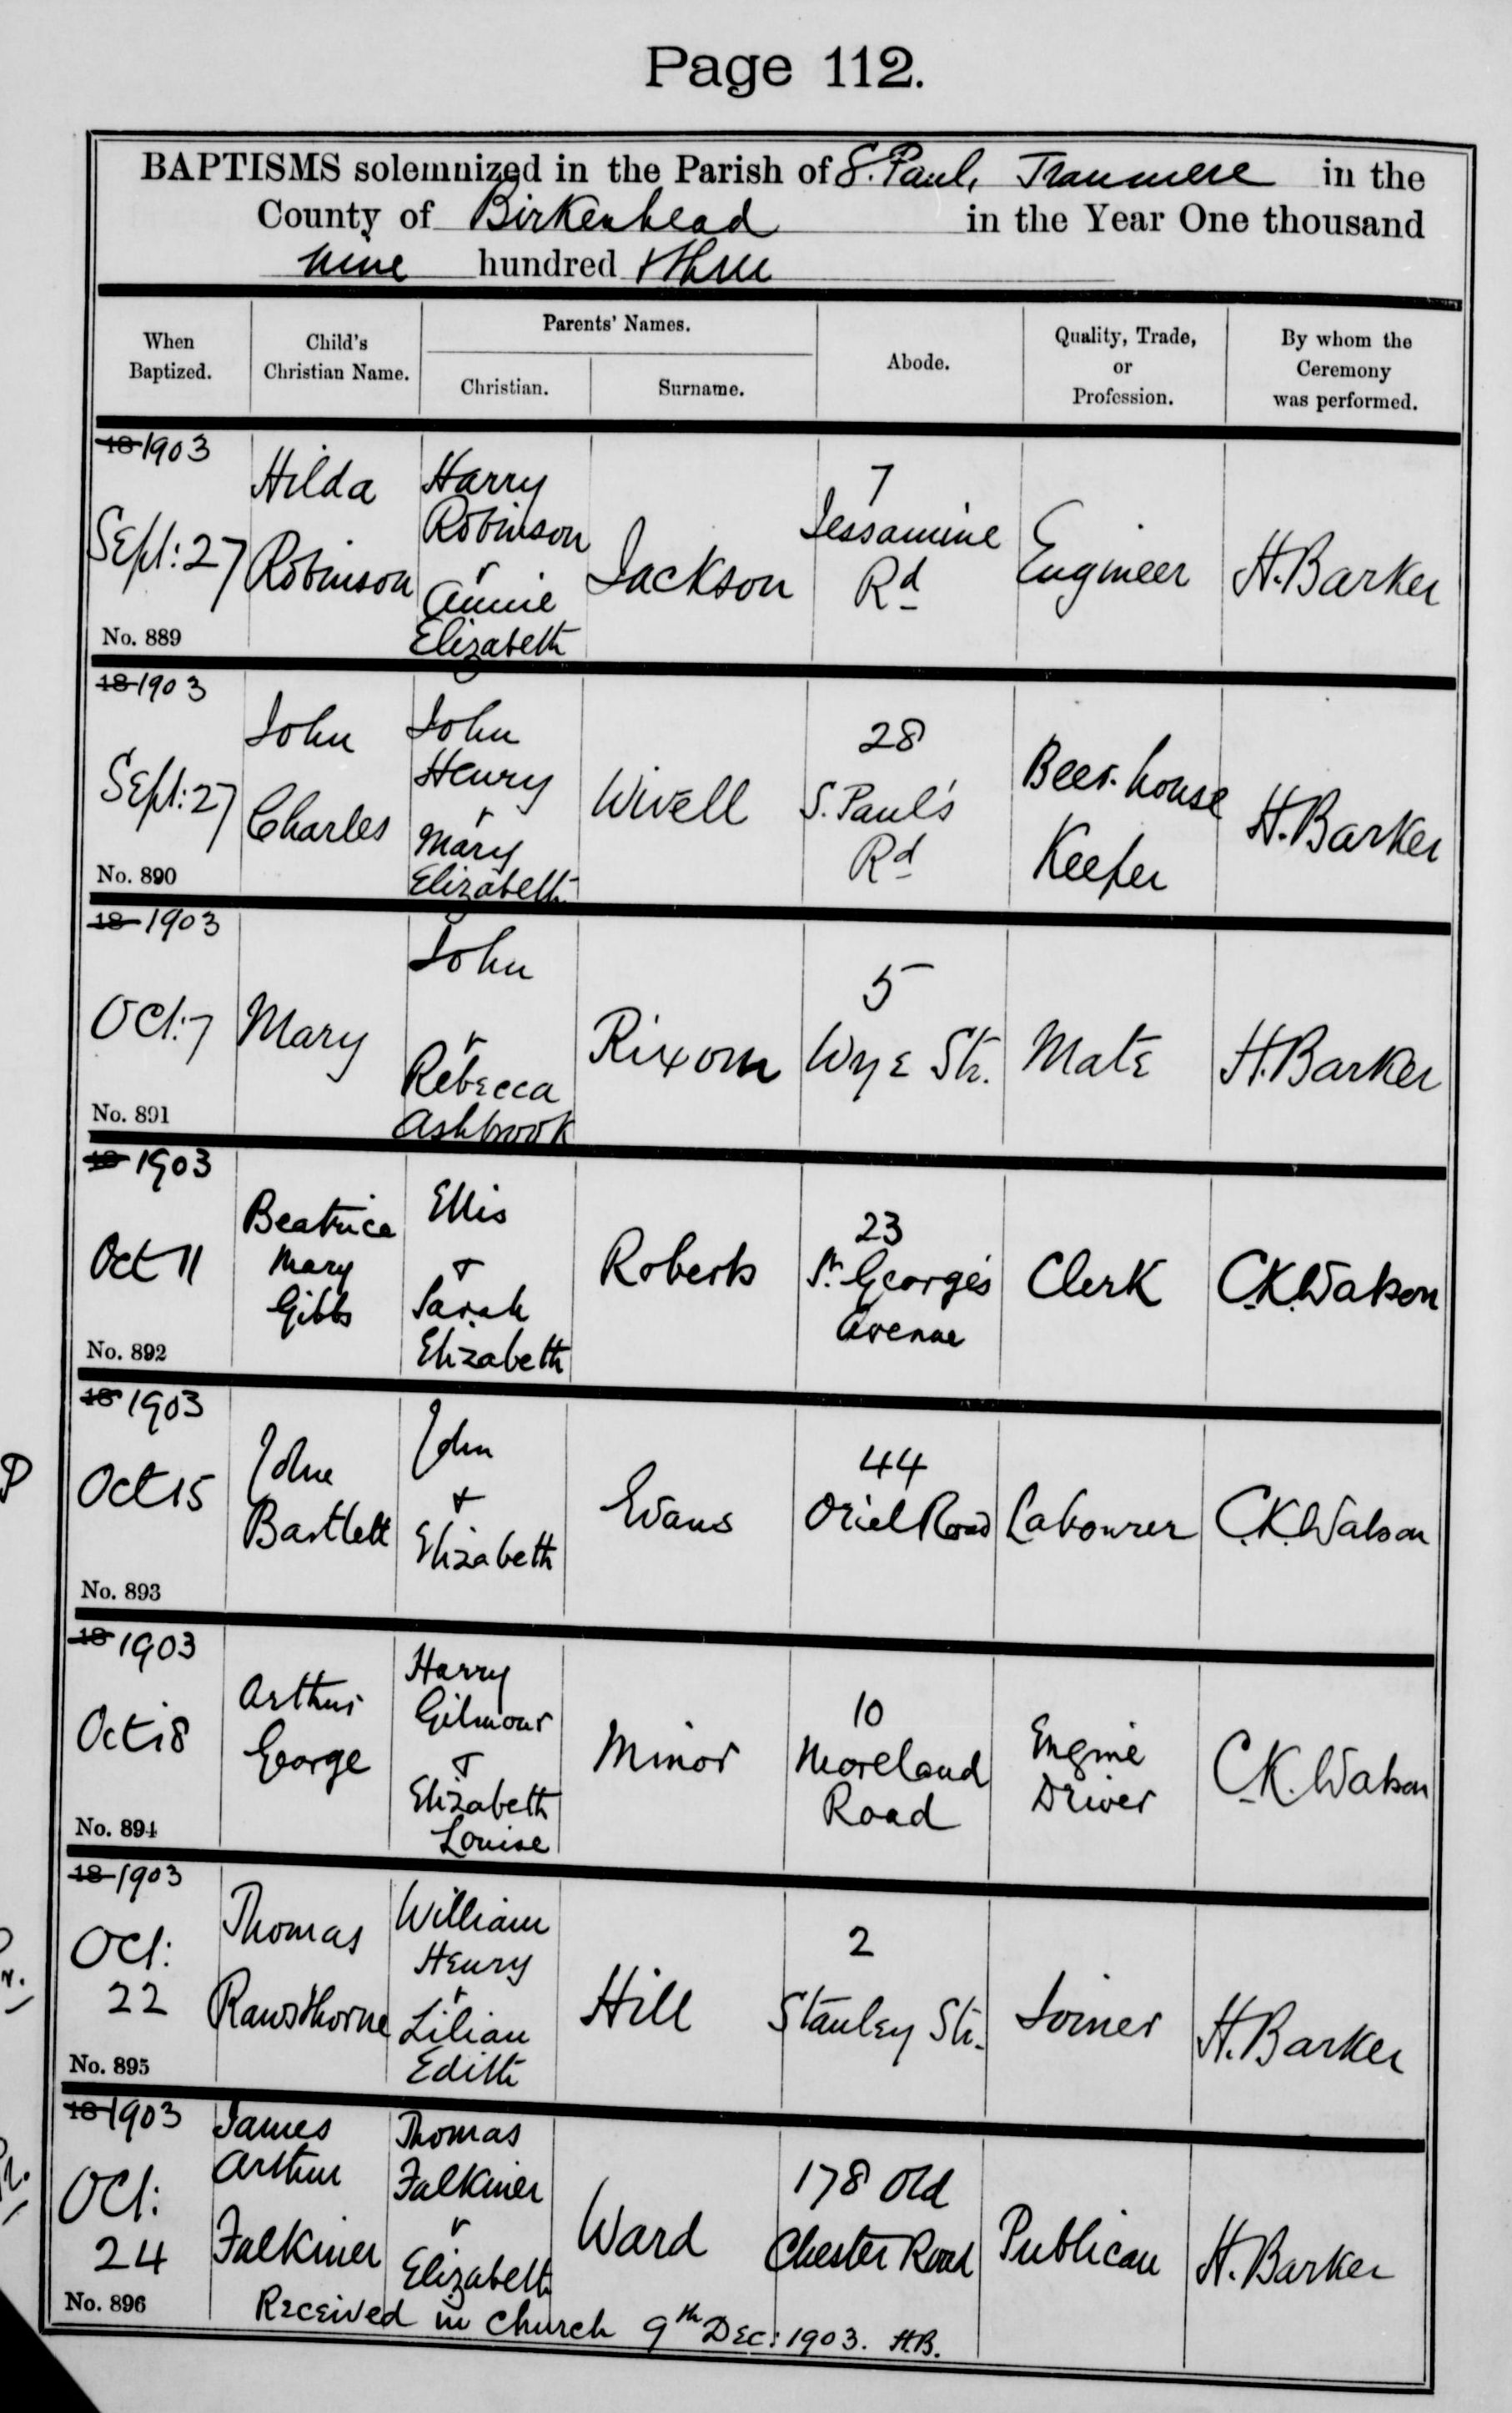 Page 112.
BAPTISMS solemnized in the Parish of S. Paul, Tranmere in the
County of Birkenhead in the Year One thousand
nine hundred & three
When Baptized.
Child's Christian Name.
Parents' Names.
Christian.
Surname.
Abode.
Quality, Trade, or Profession.
By whom the Ceremony was performed.
18 1903
Sept: 27
No. 889
Hilda
Robinson
Harry
Robinson
&
Annie
Elizabeth
Jackson
7
Jessamine
Rd
Engineer
H. Barker
18 1903
Sept: 27
No. 890
John
Charles
John
Henry
&
Mary
Elizabeth
Wivell
28
S. Paul's
Rd
Beer-house
Keeper
H. Barker
18 1903
Oct: 7
No. 891
Mary
John
&
Rebecca
Ashbrook
Rixom
5
Wye Str.
Mate
H. Barker
18 1903
Oct 11
No. 892
Beatrice
Mary
Gibbs
Ellis
&
Sarah
Elizabeth
Roberts
23
St. George's
Avenue
Clerk
C.K. Watson
18 1903
P
Oct 15
No. 893
John
Bartlett
John
&
Elizabeth
Evans
44
Oriel Road
Labourer
C.K. Watson
18 1903
Oct 18
No. 894
Arthur
George
Harry
Gilmour
&
Elizabeth
Louise
Minor
10
Moreland
Road
Engine
Driver
C.K. Watson
18 1903
Oct:
22
No. 895
Thomas
Rawsthorne
William
Henry
&
Lilian
Edith
Hill
2
Stanley Str.
Joiner
H. Barker
18 1903
Oct:
24
No. 896
James
Arthur
Falkiner
Thomas
Falkiner
&
Elizabeth
Ward
178 Old
Chester Road
Publican
H. Barker
Received in Church 9th Dec: 1903. H.B.